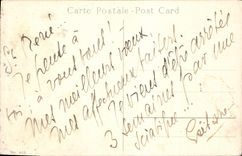 Carte Postale - Post Card
St René...
Je pense à
toi à vous tous!
Mes meilleurs vœux
mes affectueux baisers
Je viens d'être arrêtés
3 semaines par une
sciatique